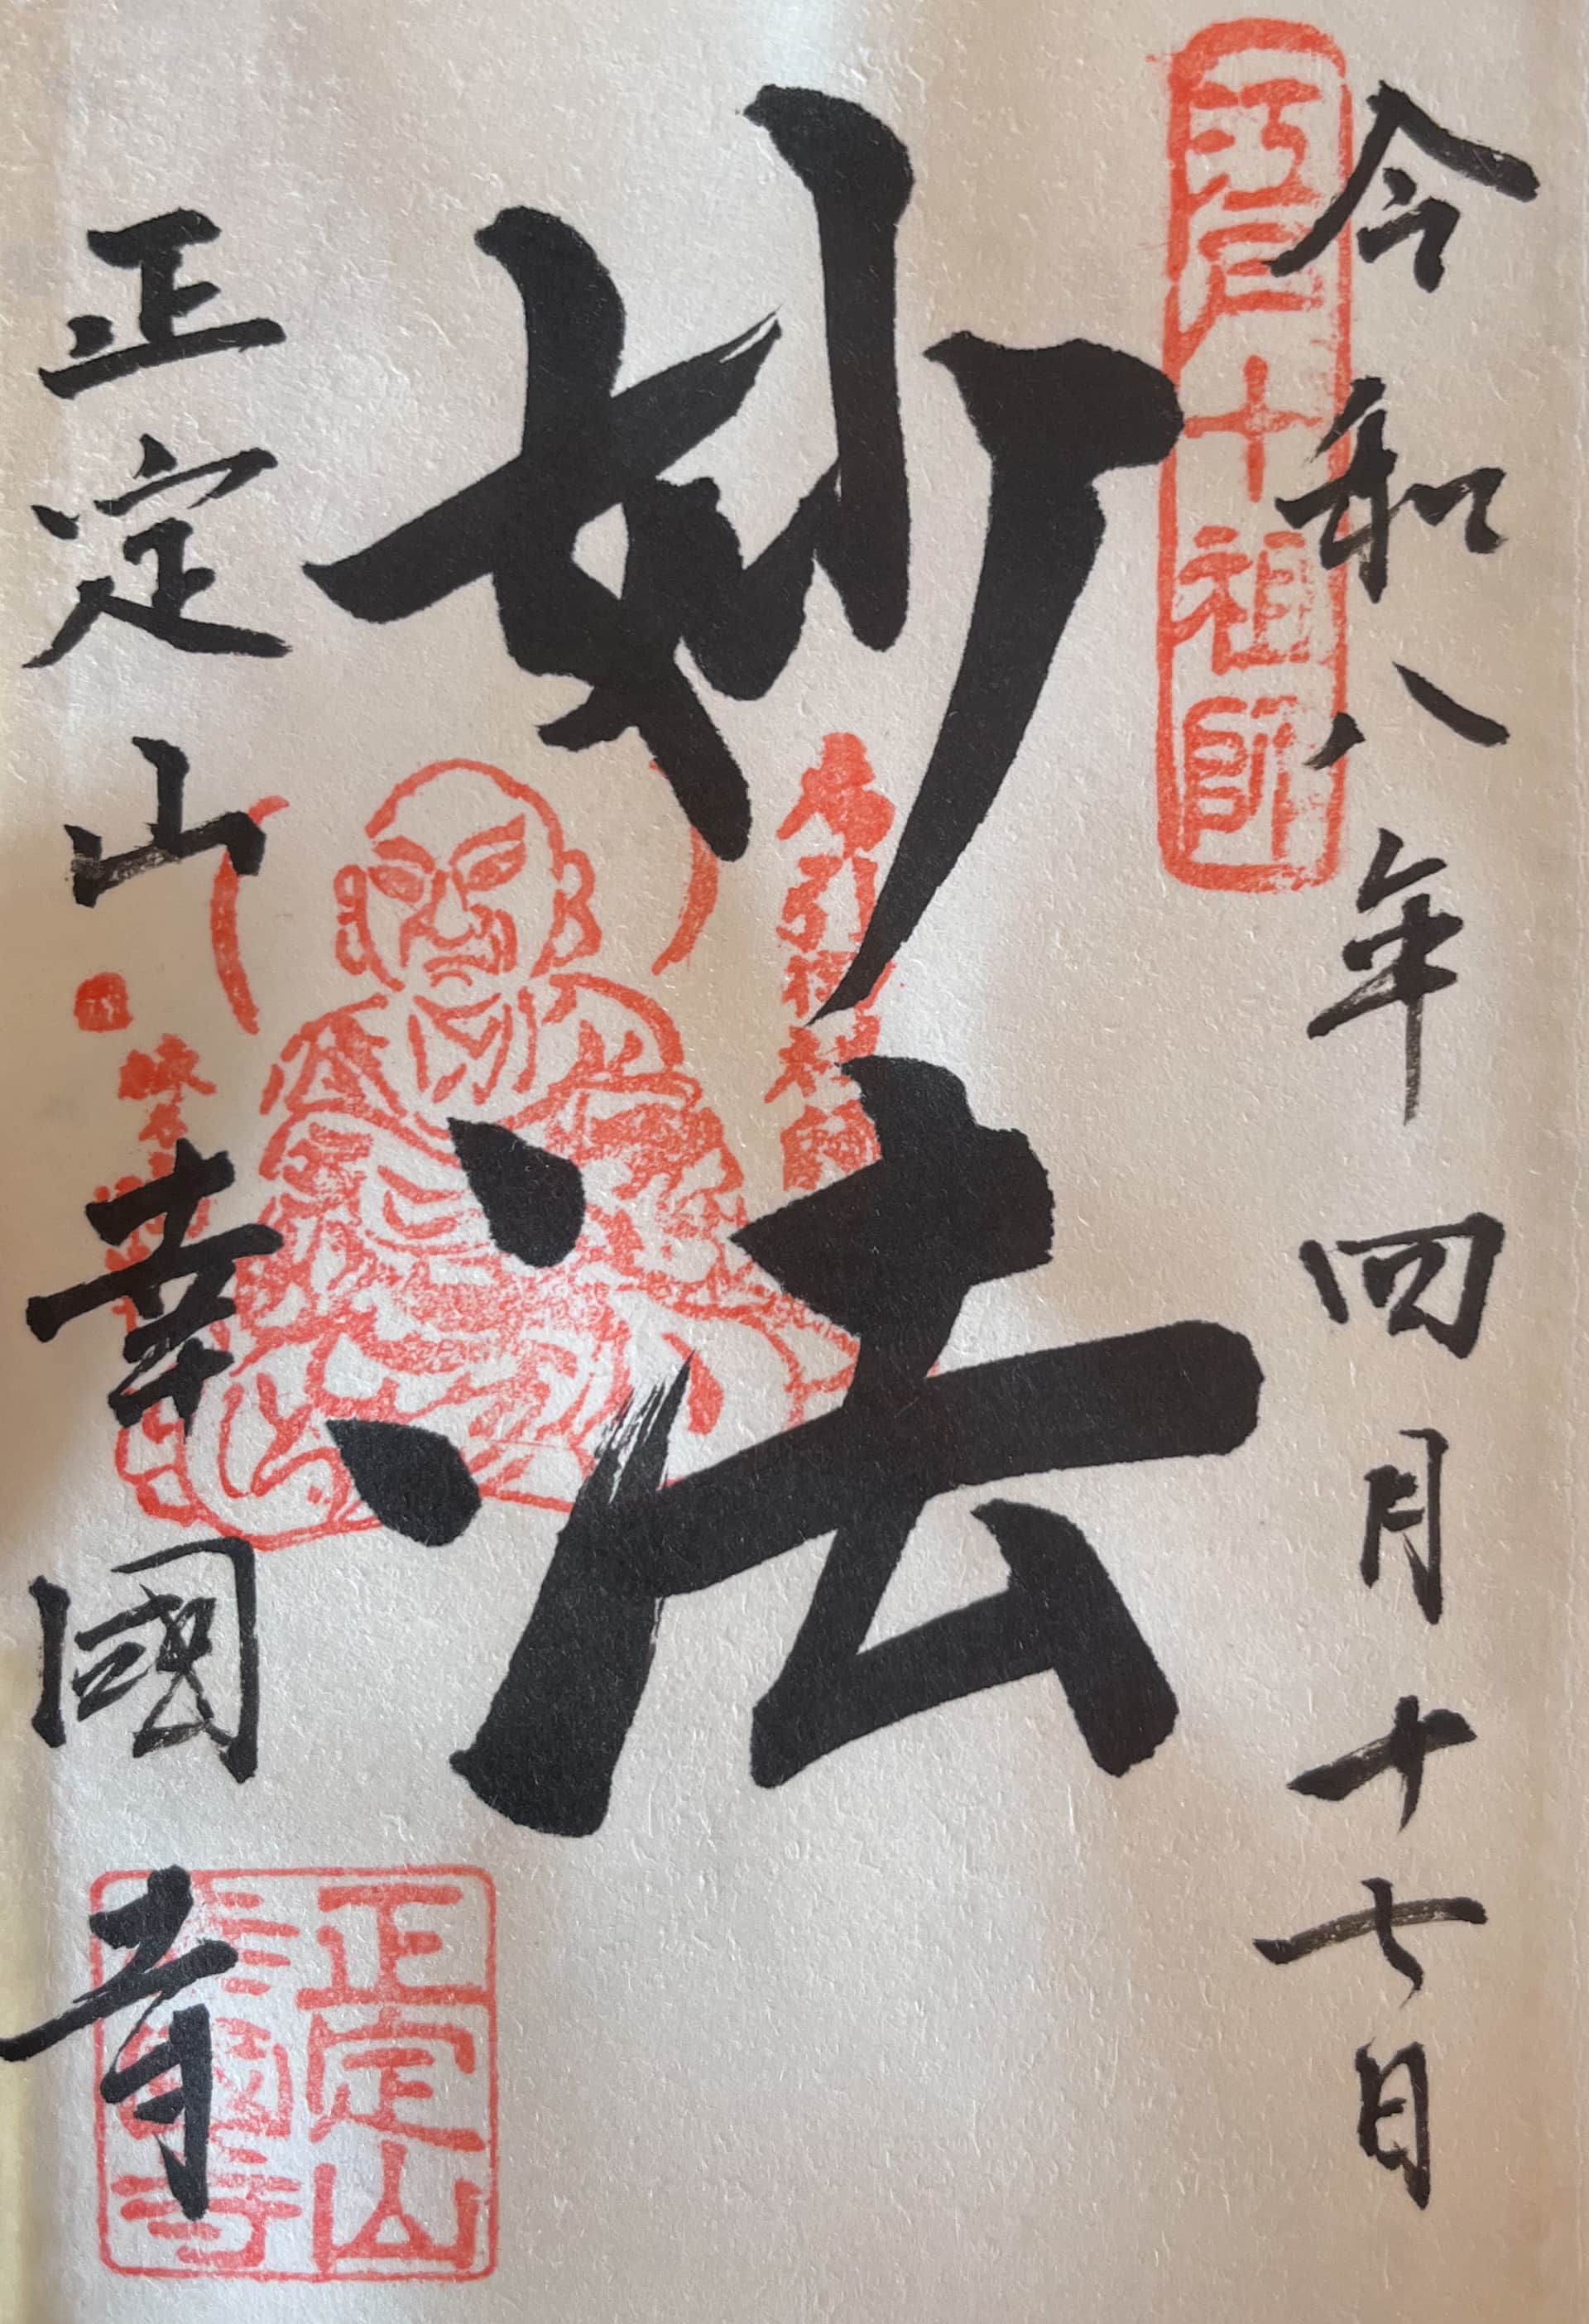 令和八年四月十七日
江戸十祖師
妙法
布引祖師
正定山幸國寺
正定山
幸國寺